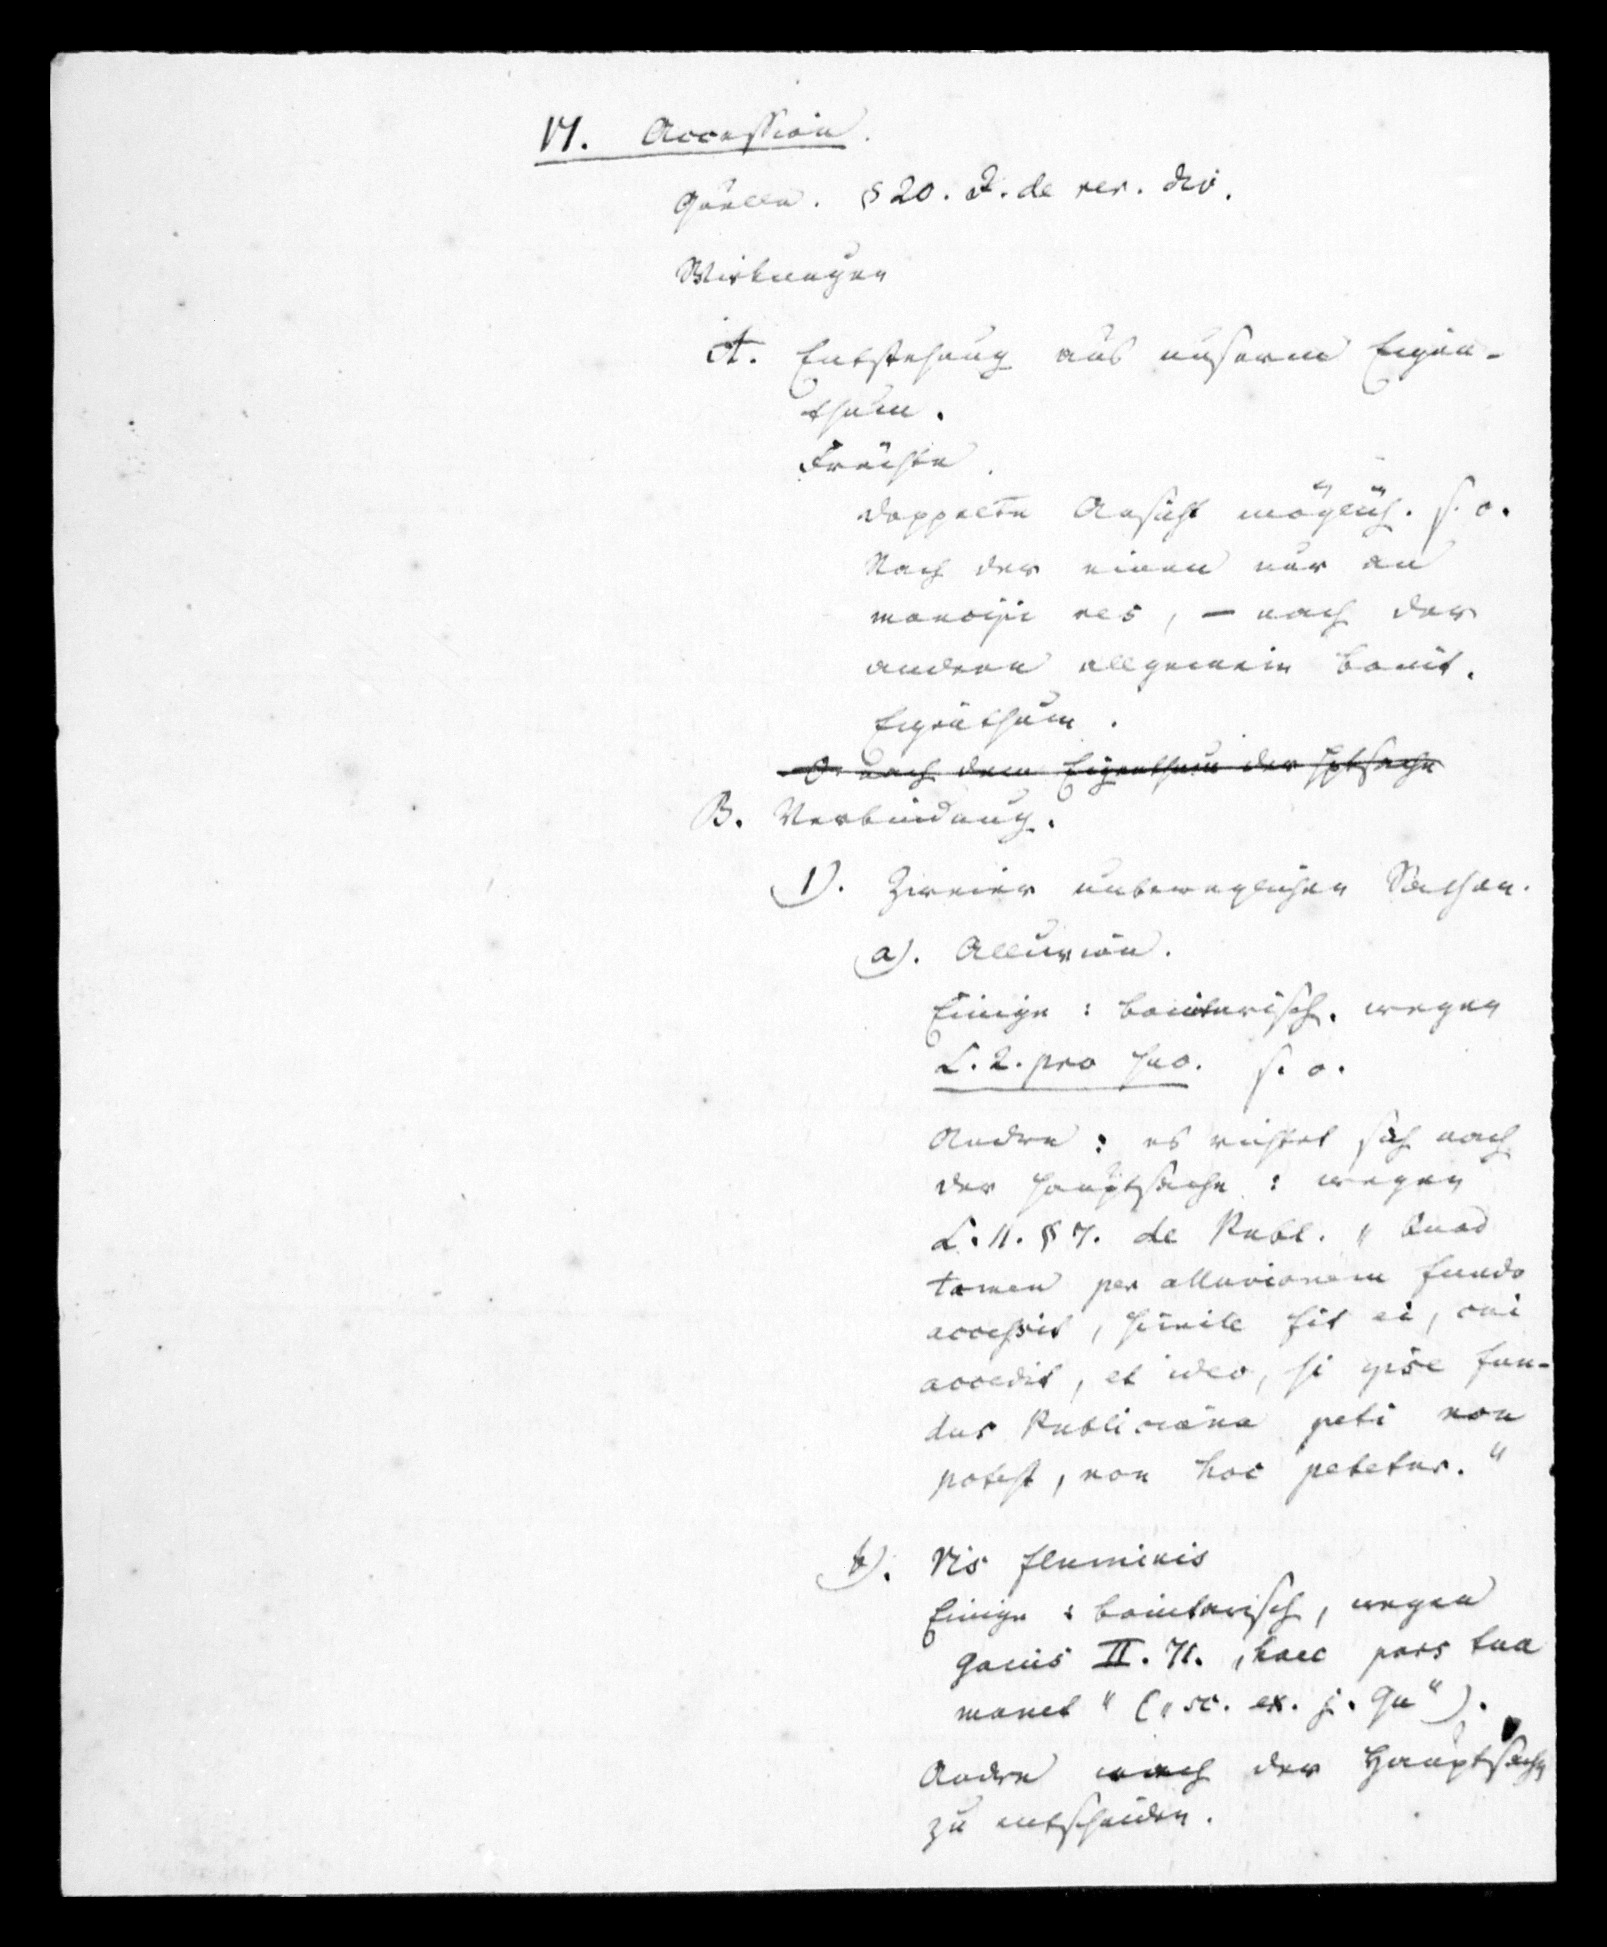 VI. Accession.
Quellen. § 20. I. de rer. div.
Wirkungen
A. Entstehung aus unserem Eigen-
thum.
Früchte.
doppelte Ansicht möglich. s. o.
Nach der einen nur an
mancipi res, – nach der
andern allgemein bonit.
Eigenthum.
nach dem Eigenthum der Hptsache
B. Verbindung.
1). Zweier unbeweglichen Sachen.
a). Alluvion.
Einige: bonitarisch. wegen
L. 2. pro suo. s. o.
Andre: es richtet sich nach
der Hauptsache: wegen
L. 11. § 7. de Publ. „Quod
tamen per alluvionem fundo
accessit, simile fit ei, cui
accedit, et ideo, si ipse fun-
dus Publiciana peti non
potest, non hoc petetur."
b). Vis fluminis
Einige: bonitarisch, wegen
Gaius II. 71. „haec pars tua
manet" („sc. ex. j. Qu").
Andre nach der Hauptsache
zu entscheiden.